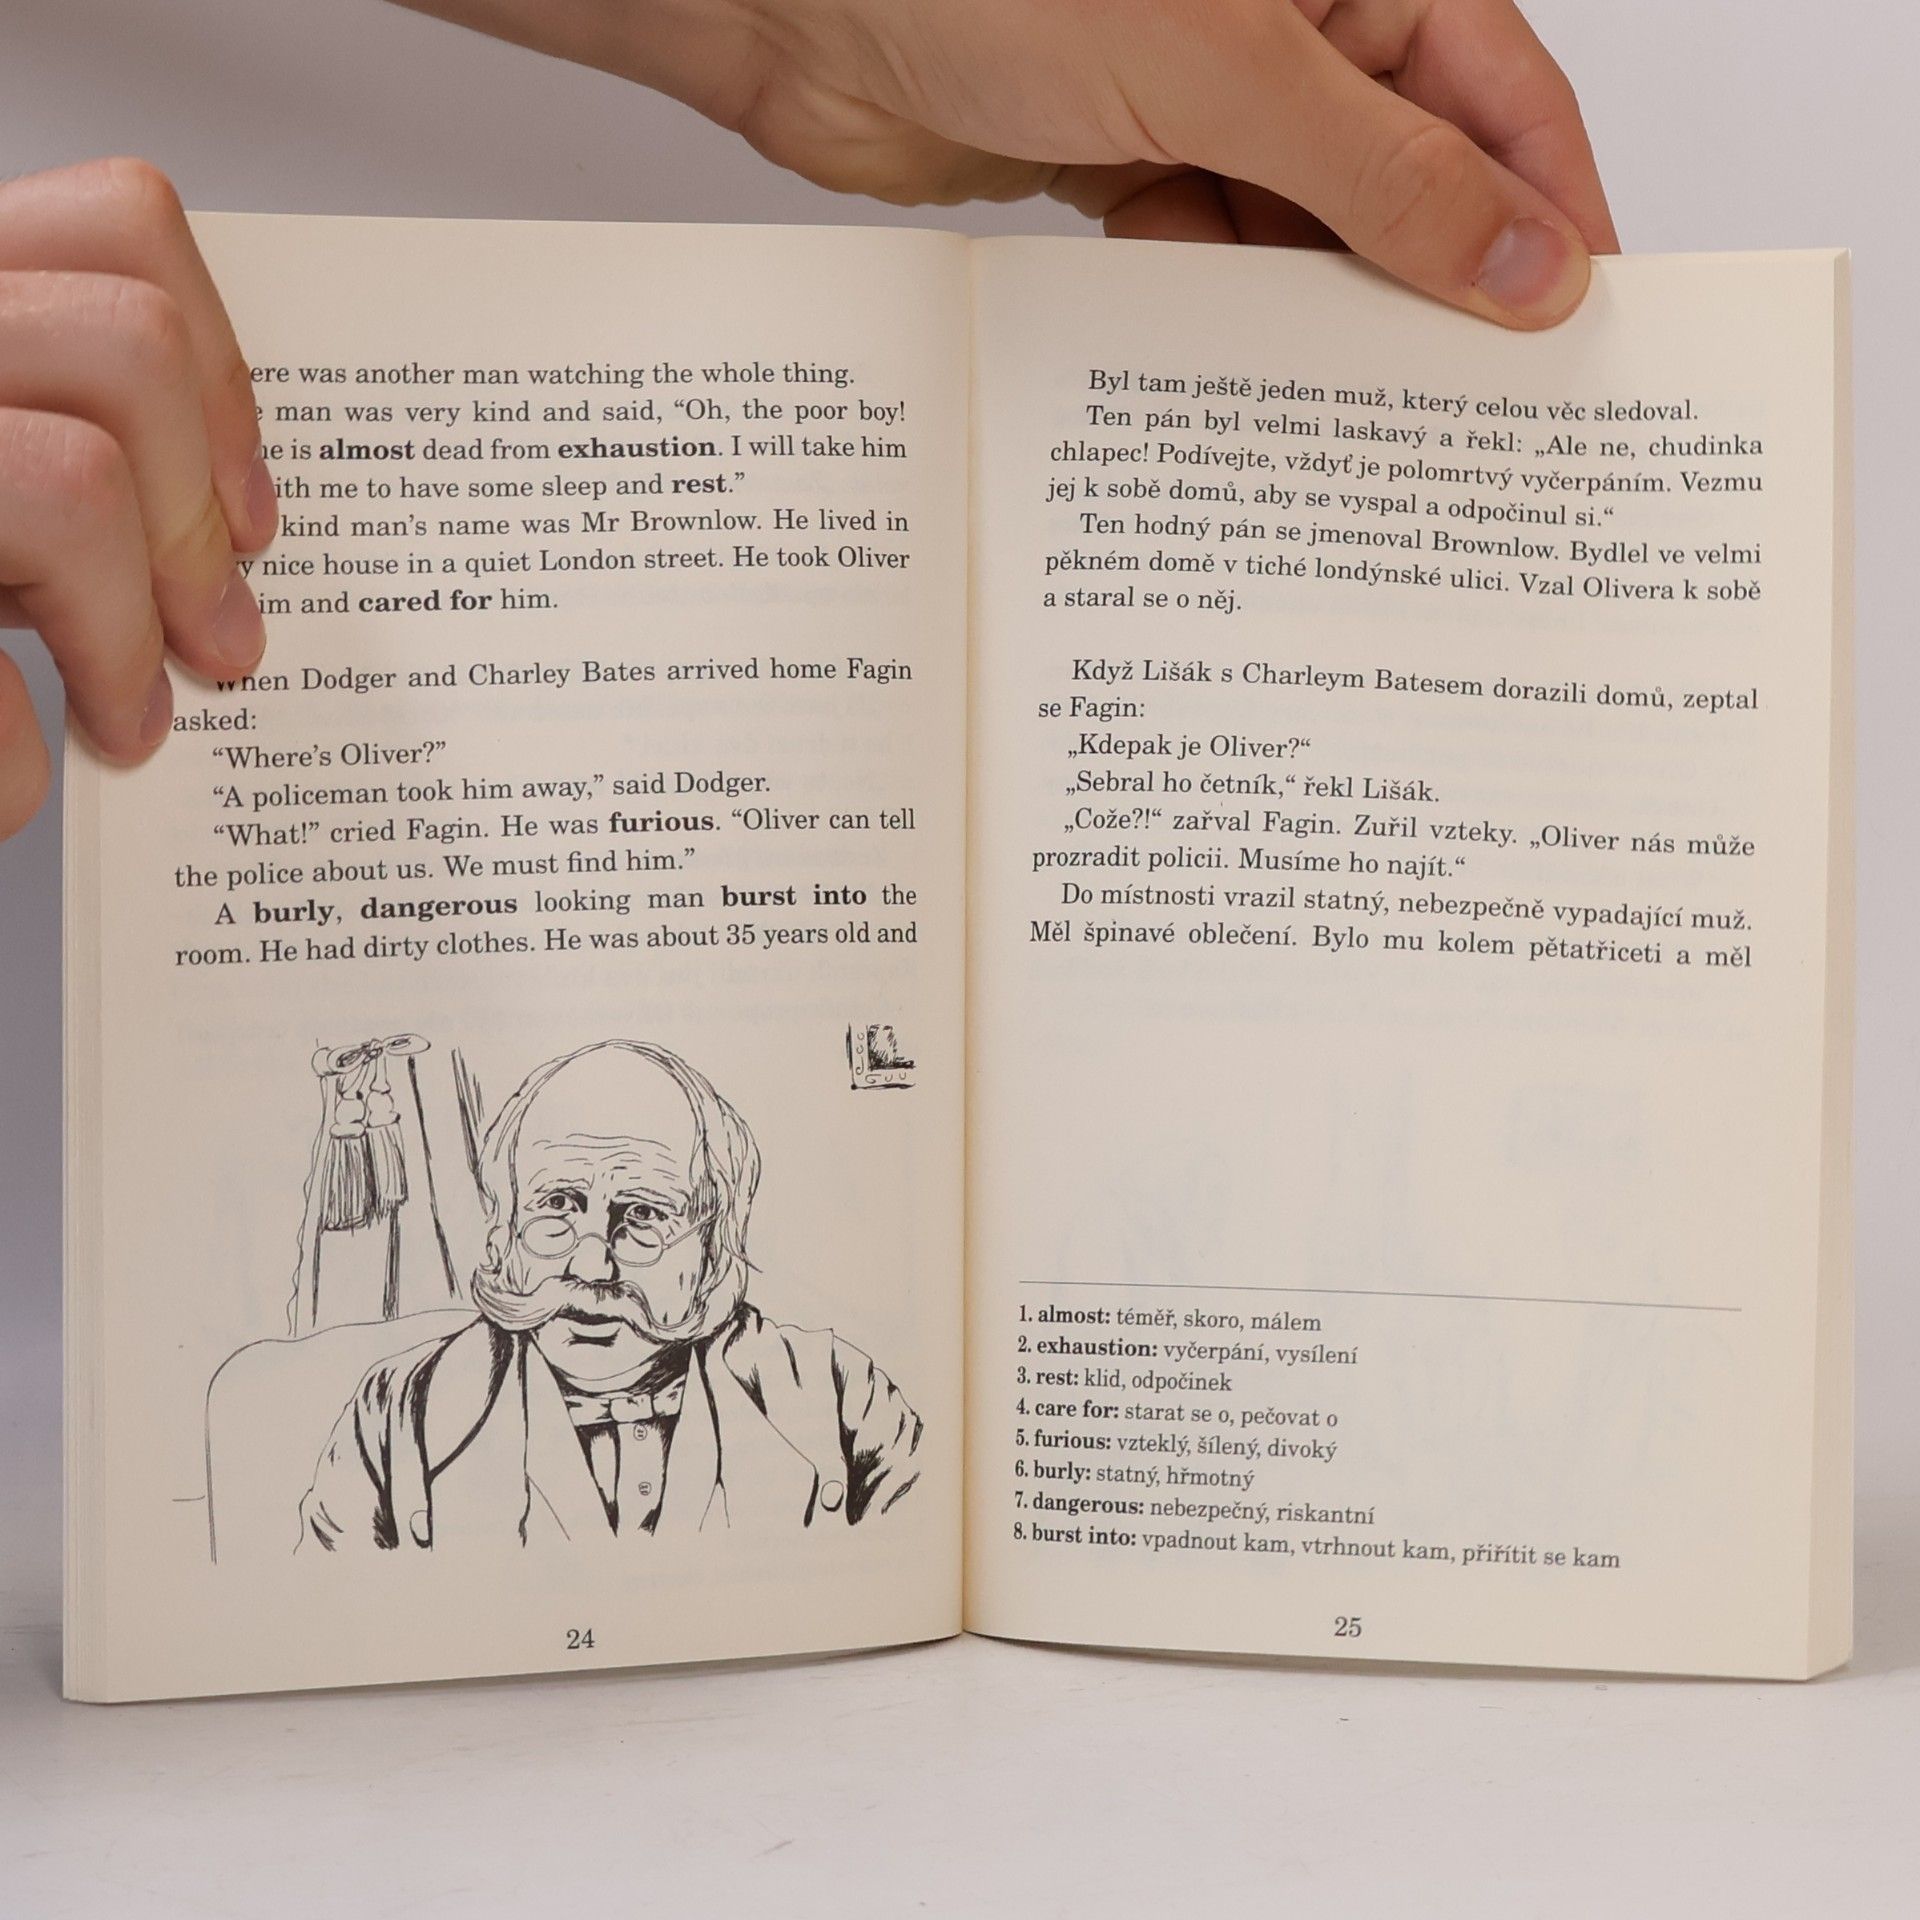 was another man watching the whole thing.
man was very kind and said, “Oh, the poor boy!
is almost dead from exhaustion. I will take him
me to have some sleep and rest.”
kind man’s name was Mr Brownlow. He lived in
nice house in a quiet London street. He took Oliver
and cared for him.
When Dodger and Charley Bates arrived home Fagin
asked:
“Where’s Oliver?”
“A policeman took him away,” said Dodger.
“What!” cried Fagin. He was furious. “Oliver can tell
the police about us. We must find him.”
A burly, dangerous looking man burst into the
room. He had dirty clothes. He was about 35 years old and
24
Byl tam ještě jeden muž, který celou věc sledoval.
Ten pán byl velmi laskavý a řekl: „Ale ne, chudinka
chlapec! Podívejte, vždyť je polomrtvý vyčerpáním. Vezmu
jej k sobě domů, aby se vyspal a odpočinul si.“
Ten hodný pán se jmenoval Brownlow. Bydlel ve velmi
pěkném domě v tiché londýnské ulici. Vzal Olivera k sobě
a staral se o něj.
Když Lišák s Charleym Batesem dorazili domů, zeptal
se Fagin:
„Kdepak je Oliver?“
„Sebral ho četník,“ řekl Lišák.
„Cože?!“ zařval Fagin. Zuřil vzteky. „Oliver nás může
prozradit policii. Musíme ho najít.“
Do místnosti vrazil statný, nebezpečně vypadající muž.
Měl špinavé oblečení. Bylo mu kolem pětatřiceti a měl
1. almost: téměř, skoro, málem
2. exhaustion: vyčerpání, vysílení
3. rest: klid, odpočinek
4. care for: starat se o, pečovat o
5. furious: vzteklý, šílený, divoký
6. burly: statný, hřmotný
7. dangerous: nebezpečný, riskantní
8. burst into: vpadnout kam, vtrhnout kam, přiřítit se kam
25